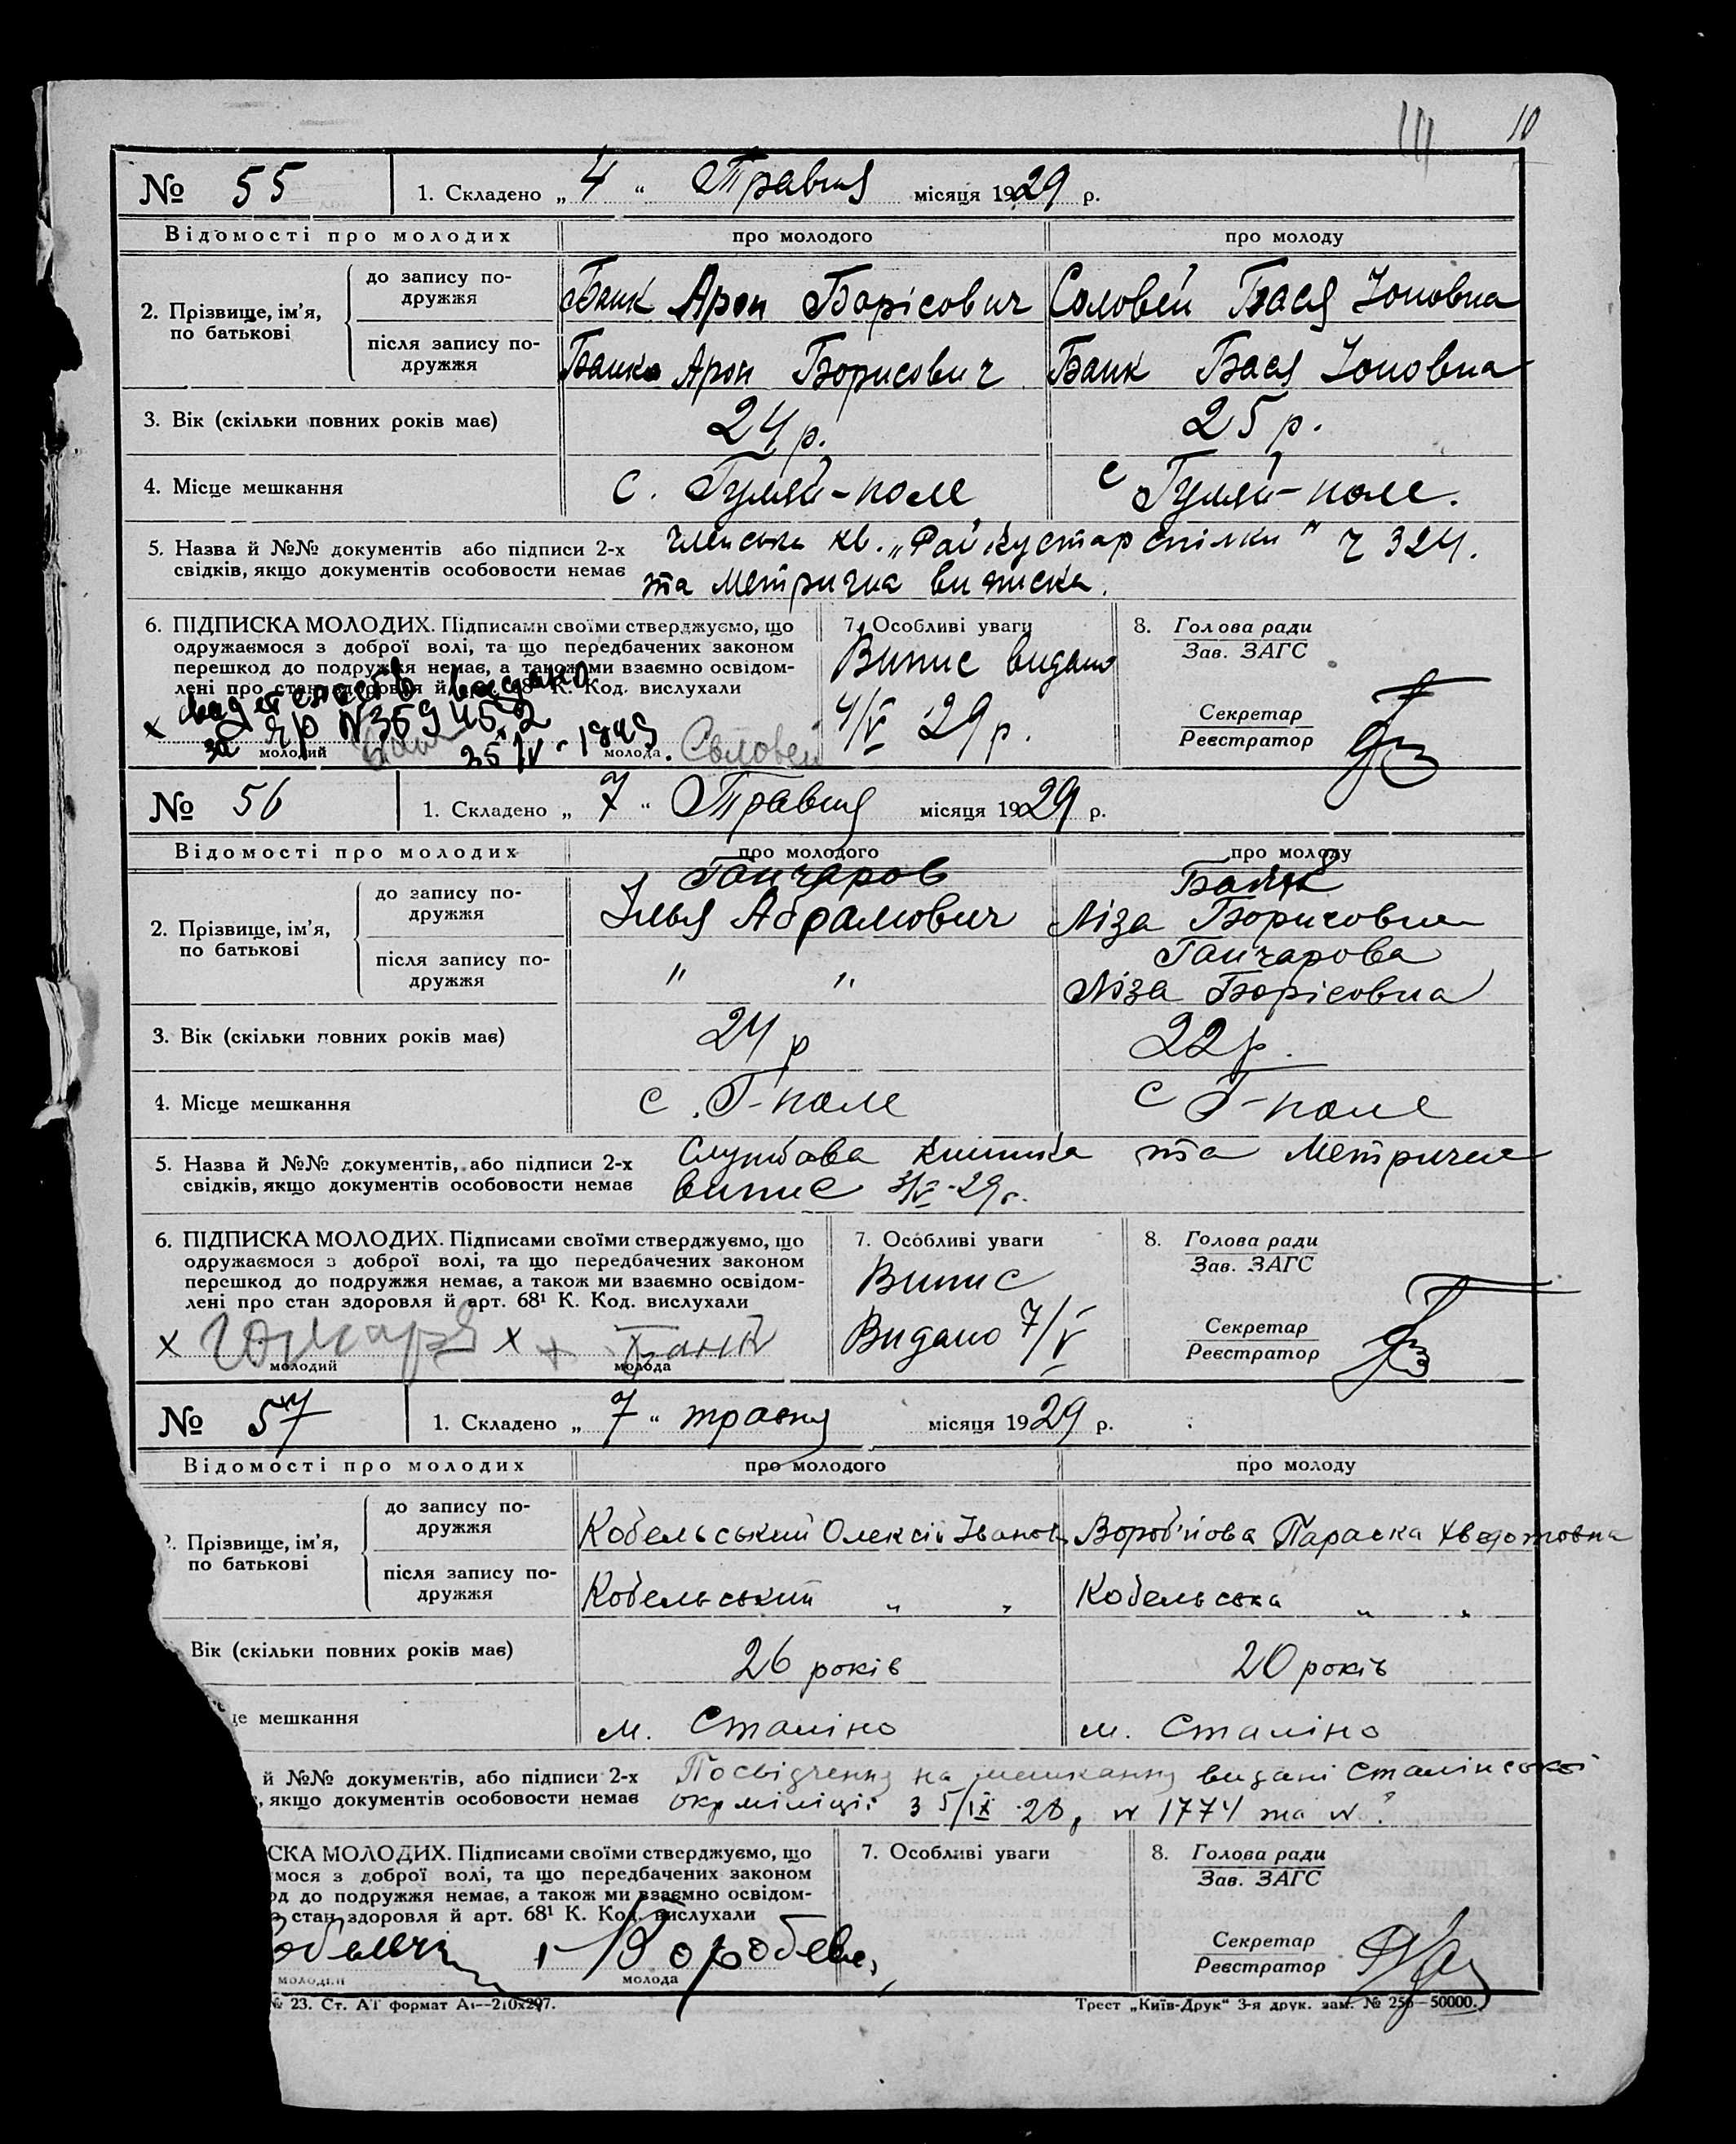 10
№ 55 1. Складено „ 4 “ Травня місяця 1929 р.
Відомості про молодих про молодого про молоду
2. Прізвище, ім’я, по батькові
до запису по-
дружжя
Банк Арон Борісович Соловей Бася Іоновна
після запису по-
дружжя
Банк Арон Борисович Банк Бася Іоновна
3. Вік (скільки повних років має) 24 р. 25 р.
4. Місце мешкання с. Гуляй-поле с Гуляй-поле.
5. Назва й №№ документів або підписи 2-х членська кв. „Райкустарспілки“ ч 324.
свідків, якщо документів особовости немає та метрична виписка.
6. ПІДПИСКА МОЛОДИХ. Підписами своїми стверджуємо, що
одружаємося з доброї волі, та що передбачених законом
перешкод до подружжя немає, а також ми взаємно освідом-
лені про стан здоровля й арт. 68¹ К. Код. вислухали
видано
х за ЯР №
молодий 25/IV - 1949 молода. Соловей
7. Особливі уваги
Випис видано
4/V 29 р.
8. Голова ради
Зав. ЗАГС
Секретар
Реєстратор
№ 56 1. Складено „ 7 “ Травня місяця 1929 р.
Відомості про молодих про молодого про молоду
2. Прізвище, ім’я, по батькові
до запису по-
дружжя
Гончаров Банк
Ілья Абрамович Ліза Борисовна
після запису по-
дружжя
" " Гончарова
Ліза Борісовна
3. Вік (скільки повних років має) 24 р 22 р.
4. Місце мешкання с. Г-поле с Г-поле
5. Назва й №№ документів, або підписи 2-х Службова книжка та метричне
свідків, якщо документів особовости немає випис 3/V-29 г.
6. ПІДПИСКА МОЛОДИХ. Підписами своїми стверджуємо, що
одружаємося з доброї волі, та що передбачених законом
перешкод до подружжя немає, а також ми взаємно освідом-
лені про стан здоровля й арт. 68¹ К. Код. вислухали
х х х Банк
молодий молода
7. Особливі уваги
Випис
Видано 7/V
8. Голова ради
Зав. ЗАГС
Секретар
Реєстратор
№ 57 1. Складено „ 7 “ травня місяця 1929 р.
Відомості про молодих про молодого про молоду
2. Прізвище, ім’я, по батькові
до запису по-
дружжя
Кобельський Олексій Іванов Вороб'йова Параска Хведотовна
після запису по-
дружжя
Кобельський " " Кобельська " "
Вік (скільки повних років має) 26 років 20 років
це мешкання м. Сталіно м. Сталіно
й №№ документів, або підписи 2-х Посвідчення на мешкання видані Сталінської
, якщо документів особовости немає окрміліції з 5/IX-28, № 1774 та №
СКА МОЛОДИХ. Підписами своїми стверджуємо, що
мося з доброї волі, та що передбачених законом
од до подружжя немає, а також ми взаємно освідом-
стан здоровля й арт. 68¹ К. Код. вислухали
молодий молода
7. Особливі уваги
8. Голова ради
Зав. ЗАГС
Секретар
Реєстратор
№ 23. Ст. АТ формат А₄—210х297. Трест „Київ-Друк“ 3-я друк. зам. № 256—50000.